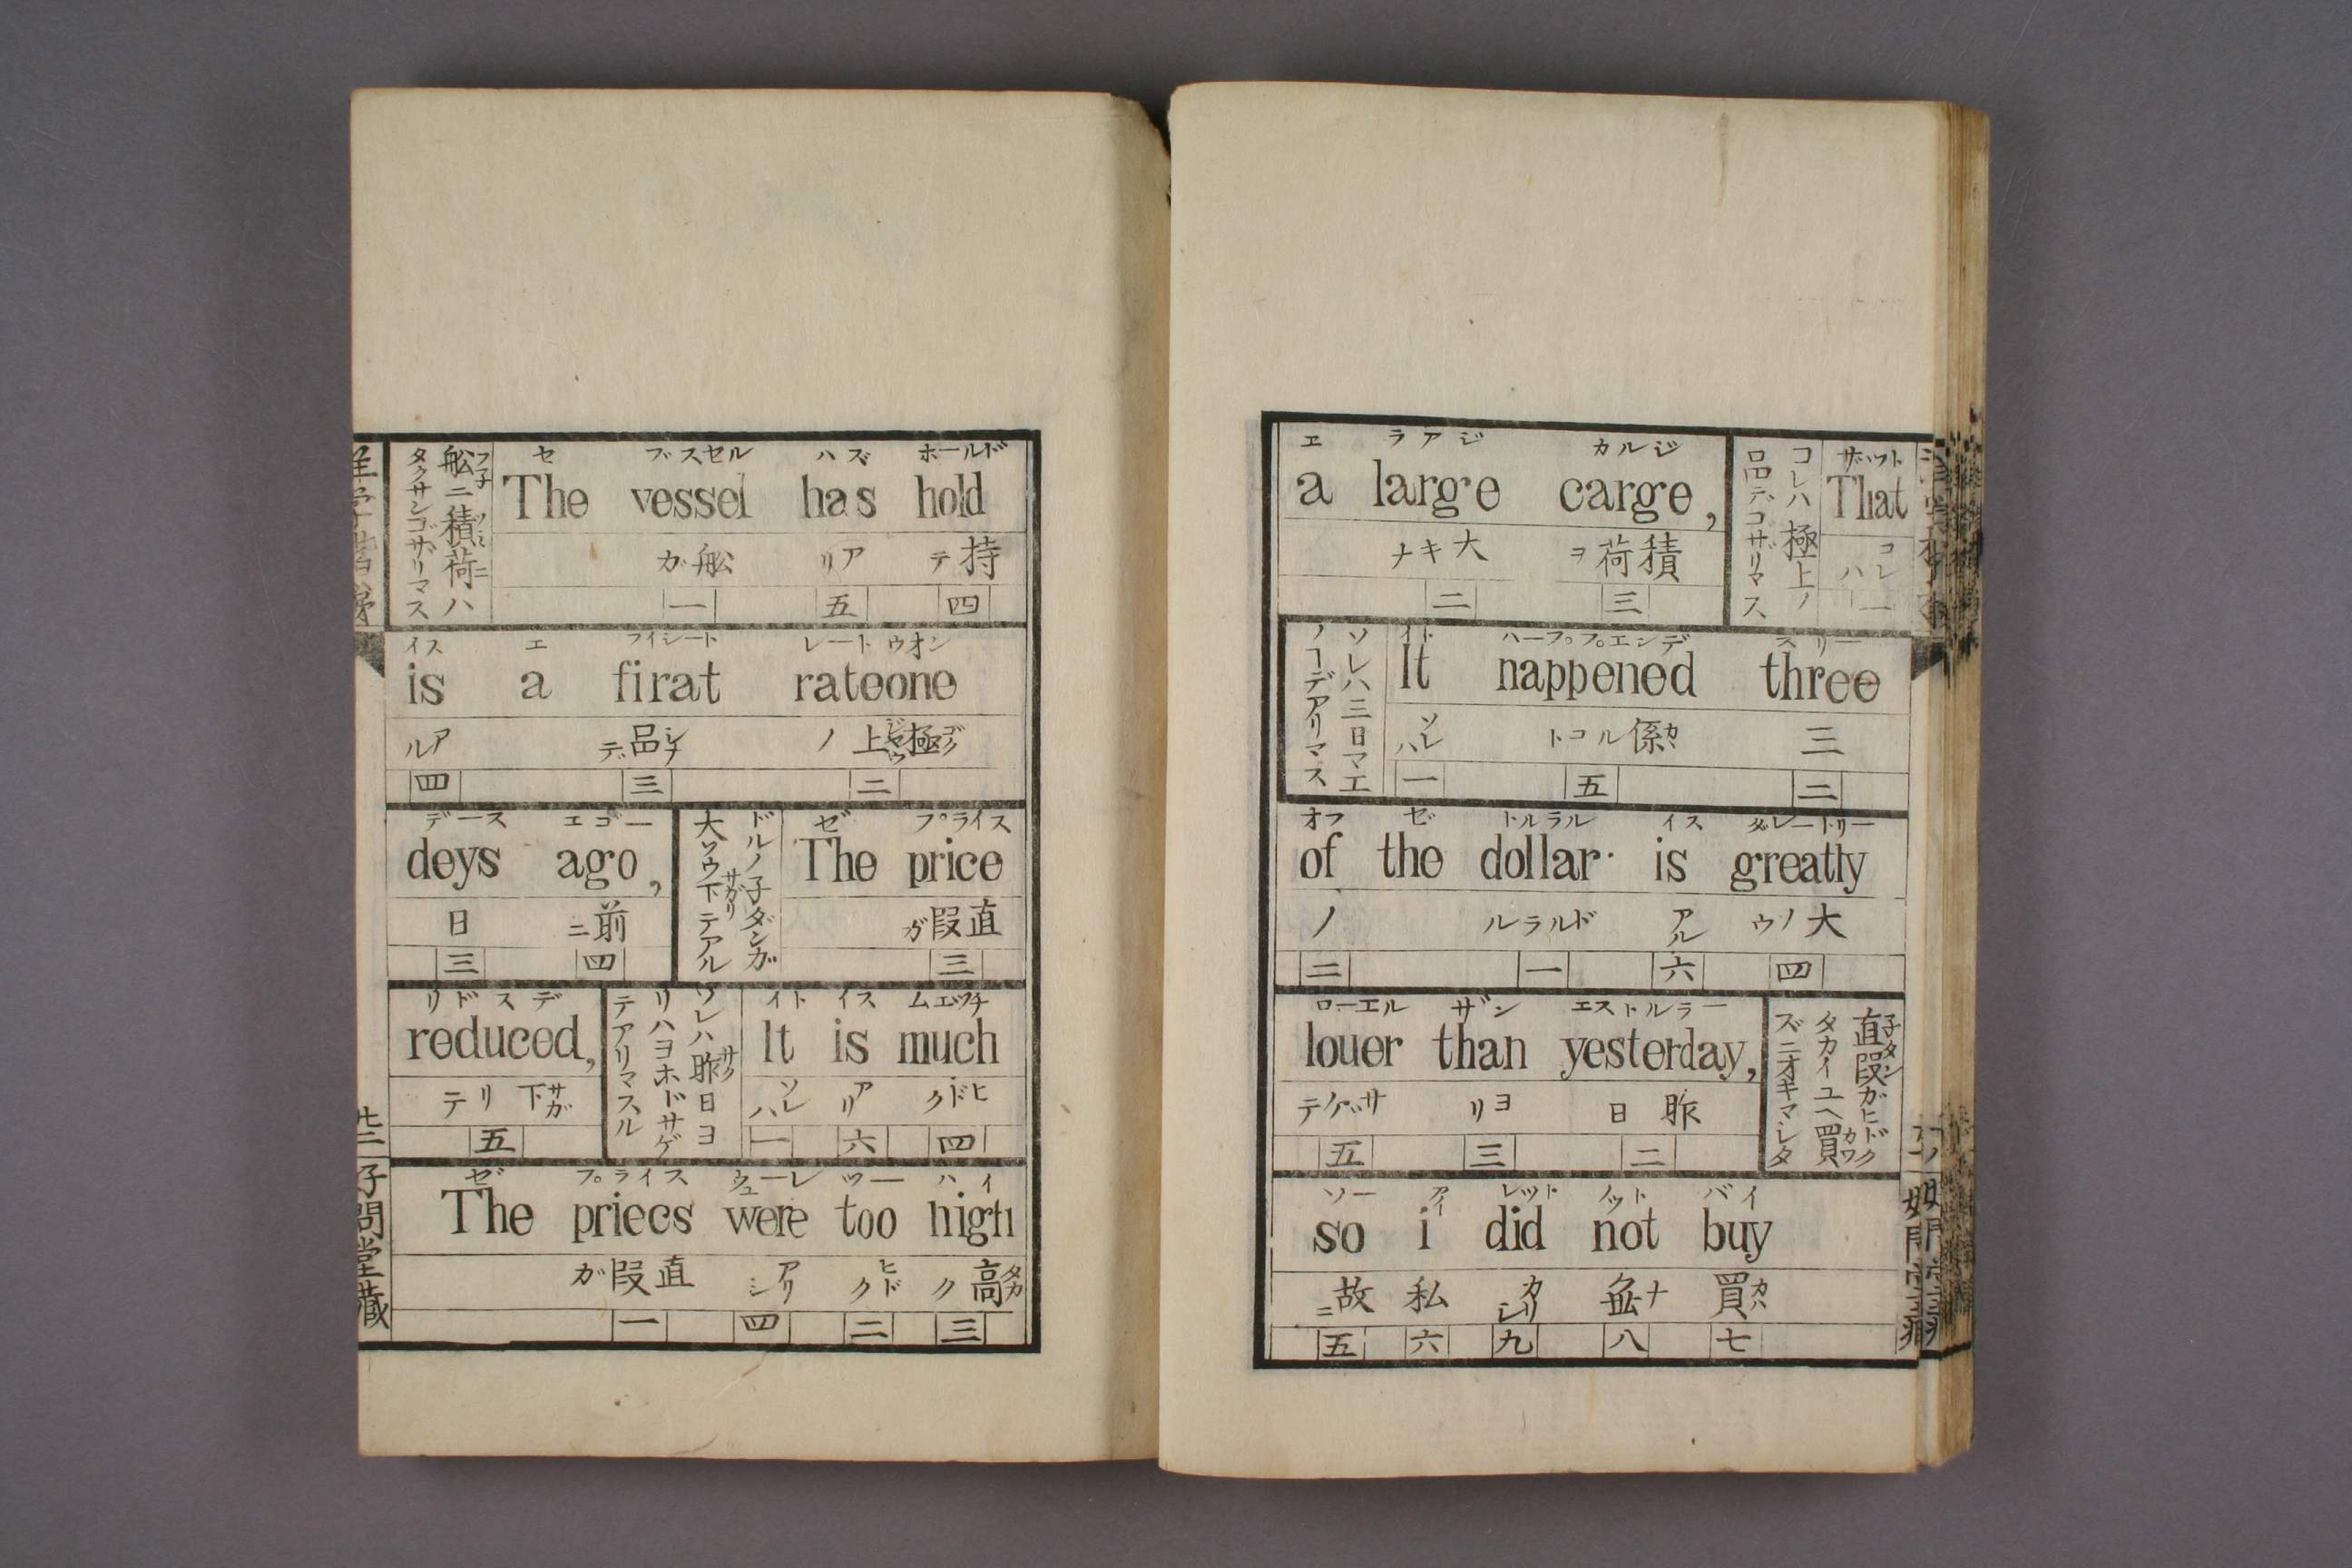 セ ブスセル ハズ ホールド
The vessel has hold
舩ガ アリ 持テ
一 五 四
舩ニ積荷ハ
タクサンゴザリマス
エ ラアジ カルジ
a large carge,
大キナ 積荷ヲ
二 三
コレハ極上ノ
品デコザリマス
ザット
That
コレハ
一
イス エ フイシート レート ウオン
is a firat rateone
アル 品デ 極上ノ
四 三 二
ソレハ三日マエ
ノヿデアリマス
イト ハーププエンデ スリー
It nappened three
ソレハ 係ルコト 三
一 五 二
デース エゴー
deys ago,
日 前ニ
三 四
ドルノ子ダンガ
大ソウ下テアル
サガリ
ゼ プライス
The price
直段ガ
三
オフ ゼ トルラル イス グレートリー
of the dollar is greatly
ノ ドルラル アル 大ノウ
二 一 六 四
リドスデ
reduced,
下リテ
五
ソレハ昨日ヨ
リハヨホドサゲ
テアリマスル
イト イス ムエッチ
It is much
ソレハ アリ ヒドク
一 六 四
ローエル ザン エストルラー
louer than yesterday,
サゲテ ヨリ 昨日
五 三 二
直段ガヒドク
タカイユヘ買
ズニオキマシタ
ゼ プライス ウューレ ツー ハイ
The priecs were too high
直段ガ アリシ ヒドク 高ク
一 四 二 三
ソー アイ レット ノット バイ
so i did not buy
故ニ 私 カリシ ナ 買
五 六 九 八 七
好問堂蔵